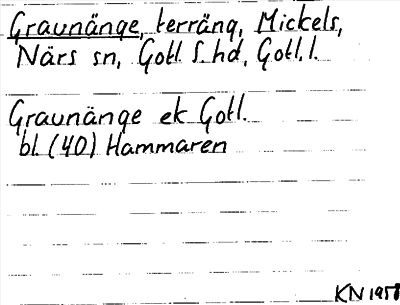 Graunänge, terräng, Mickels,
Närs sn, Gotl. S. hd, Gotl. l.
Graunänge ek Gotl.
bl. (40) Hammaren
KN 1958